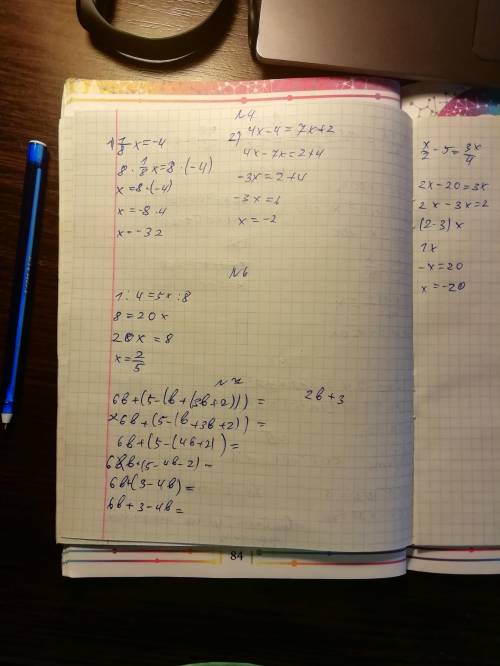 №4
1) 1/8 x = -4
8 · 1/8 x = 8 · (-4)
x = 8 · (-4)
x = -8 · 4
x = -32
2) 4x - 4 = 7x + 2
4x - 7x = 2 + 4
-3x = 2 + 4
-3x = 6
x = -2
№6
1 : 4 = 5x : 8
8 = 20x
20x = 8
x = 2/5
6b + (5 - (b + (3b + 2))) =
6b + (5 - (b + 3b + 2)) =
6b + (5 - (4b + 2)) =
6b + (5 - 4b - 2) =
6b + (3 - 4b) =
6b + 3 - 4b =
2b + 3
84
x/2 - 5 = 3x/4
2x - 20 = 3x
2x - 3x = 2
(2 - 3) x
1x
-x = 20
x = -20